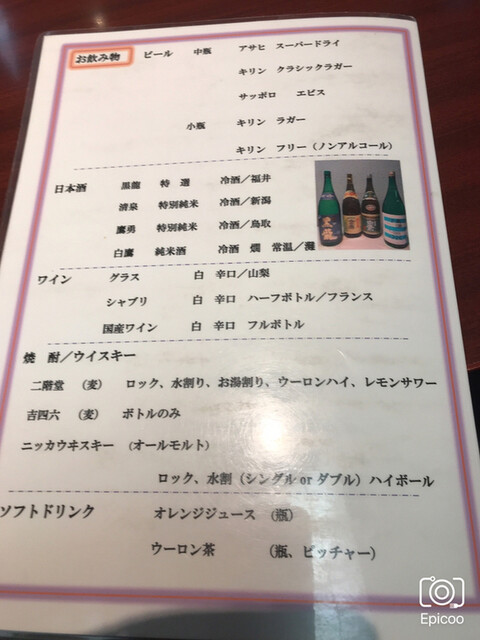 お飲み物 ビール 中瓶 アサヒ スーパードライ
キリン クラシックラガー
サッポロ エビス
小瓶 キリン ラガー
キリン フリー（ノンアルコール）
日本酒 黒龍 特 選 冷酒／福井
清泉 特別純米 冷酒／新潟
鷹勇 特別純米 冷酒／鳥取
白鷹 純米酒 冷酒 燗 常温／灘
ワイン グラス 白 辛口／山梨
シャブリ 白 辛口 ハーフボトル／フランス
国産ワイン 白 辛口 フルボトル
焼 酎／ウイスキー
二階堂 （麦） ロック、水割り、お湯割り、ウーロンハイ、レモンサワー
吉四六 （麦） ボトルのみ
ニッカウヰスキー （オールモルト）
ロック、水割（シングル or ダブル）ハイボール
ソフトドリンク オレンジジュース （瓶）
ウーロン茶 （瓶、ピッチャー）
Epicoo